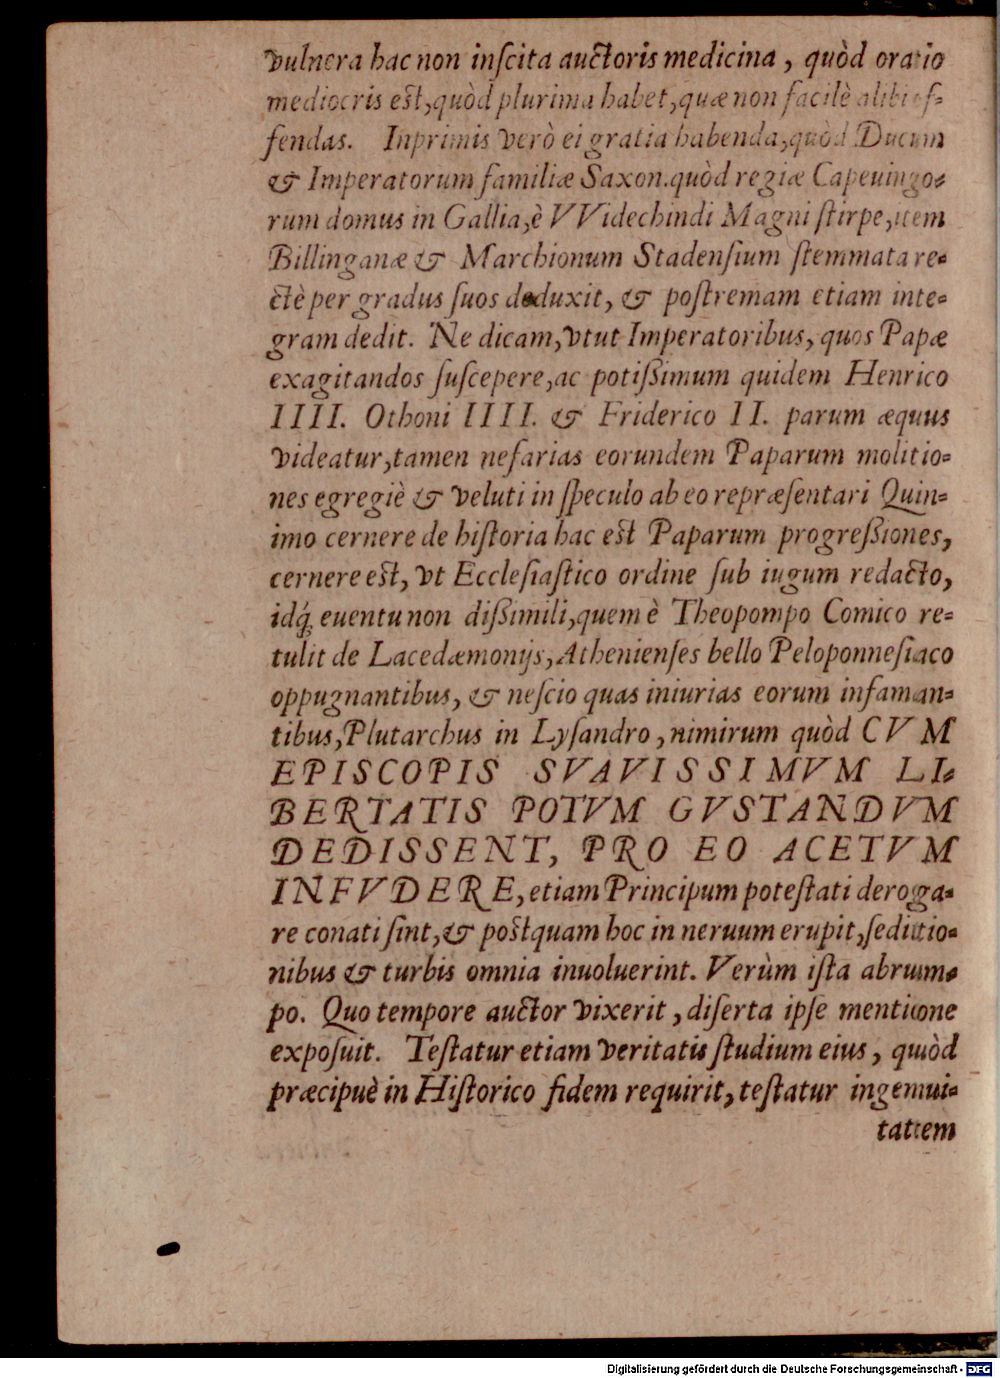 vulnera hac non inſcita auctoris medicina, quòd oratio
mediocris eſt, quòd plurima habet, quæ non facilè alibi of-
fendas. Inprimis verò ei gratia habenda, quòd Ducum
& Imperatorum familiæ Saxon. quòd regiæ Capeuingo-
rum domus in Gallia, è VVidechindi Magni ſtirpe, item
Billinganæ & Marchionum Stadenſium ſtemmata re-
ctè per gradus ſuos deduxit, & poſtremam etiam inte-
gram dedit. Ne dicam, vtut Imperatoribus, quos Papæ
exagitandos ſuſcepere, ac potiſsimum quidem Henrico
IIII. Othoni IIII. & Friderico II. parum æquus
videatur, tamen nefarias eorundem Paparum molitio-
nes egregiè & veluti in ſpeculo ab eo repræſentari Quin-
imo cernere de hiſtoria hac eſt Paparum progreſsiones,
cernere eſt, vt Eccleſiaſtico ordine ſub iugum redacto,
idq́; euentu non diſsimili, quem è Theopompo Comico re-
tulit de Lacedæmonijs, Athenienſes bello Peloponneſiaco
oppugnantibus, & neſcio quas iniurias eorum infaman-
tibus, Plutarchus in Lyſandro, nimirum quòd CVM
EPISCOPIS SVAVISSIMVM LI-
BERTATIS POTVM GVSTANDVM
DEDISSENT, PRO EO ACETVM
INFVDERE, etiam Principum poteſtati deroga-
re conati ſint, & poſtquam hoc in neruum erupit, ſeditio-
nibus & turbis omnia inuoluerint. Verùm iſta abrum-
po. Quo tempore auctor vixerit, diſerta ipſe mentione
expoſuit. Teſtatur etiam veritatis ſtudium eius, quòd
præcipuè in Hiſtorico fidem requirit, teſtatur ingenui-
tatem
Digitalisierung gefördert durch die Deutsche Forschungsgemeinschaft - DFG